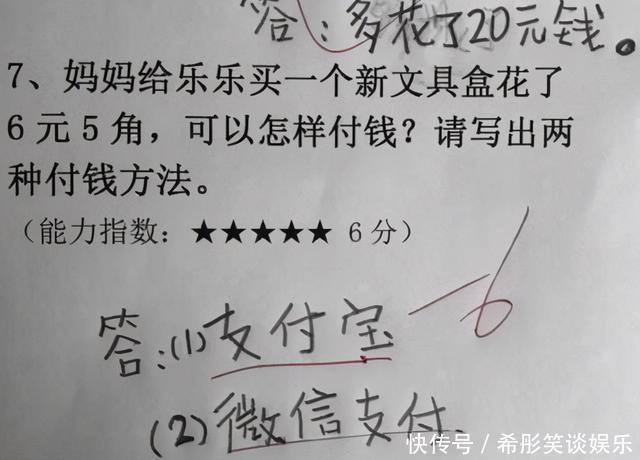 答：多花了20元钱。
7、妈妈给乐乐买一个新文具盒花了
6元5角，可以怎样付钱？请写出两
种付钱方法。
（能力指数：★★★★★ 6分）
答：(1)支付宝 -6
(2)微信支付.
快传号／希彤笑谈娱乐